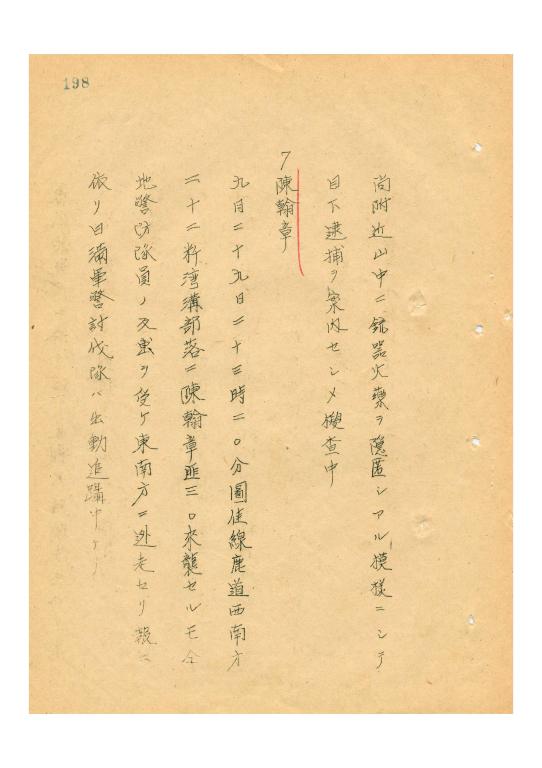 198
尚附近山中ニ銃器火薬ヲ隠匿シアル模様ニシテ
目下逮捕ヲ案内セシメ捜査中
7 陳翰章
九日二十九日二十三時二〇分圖佳線鹿道西南方
二十二粁湾溝部落ニ陳翰章匪三〇來襲セルモ仝
地警防隊員ノ反撃ヲ受ケ東南方ニ逃走セリ報ニ
依リ日滿軍警討伐隊ハ出動追躡中ナリ